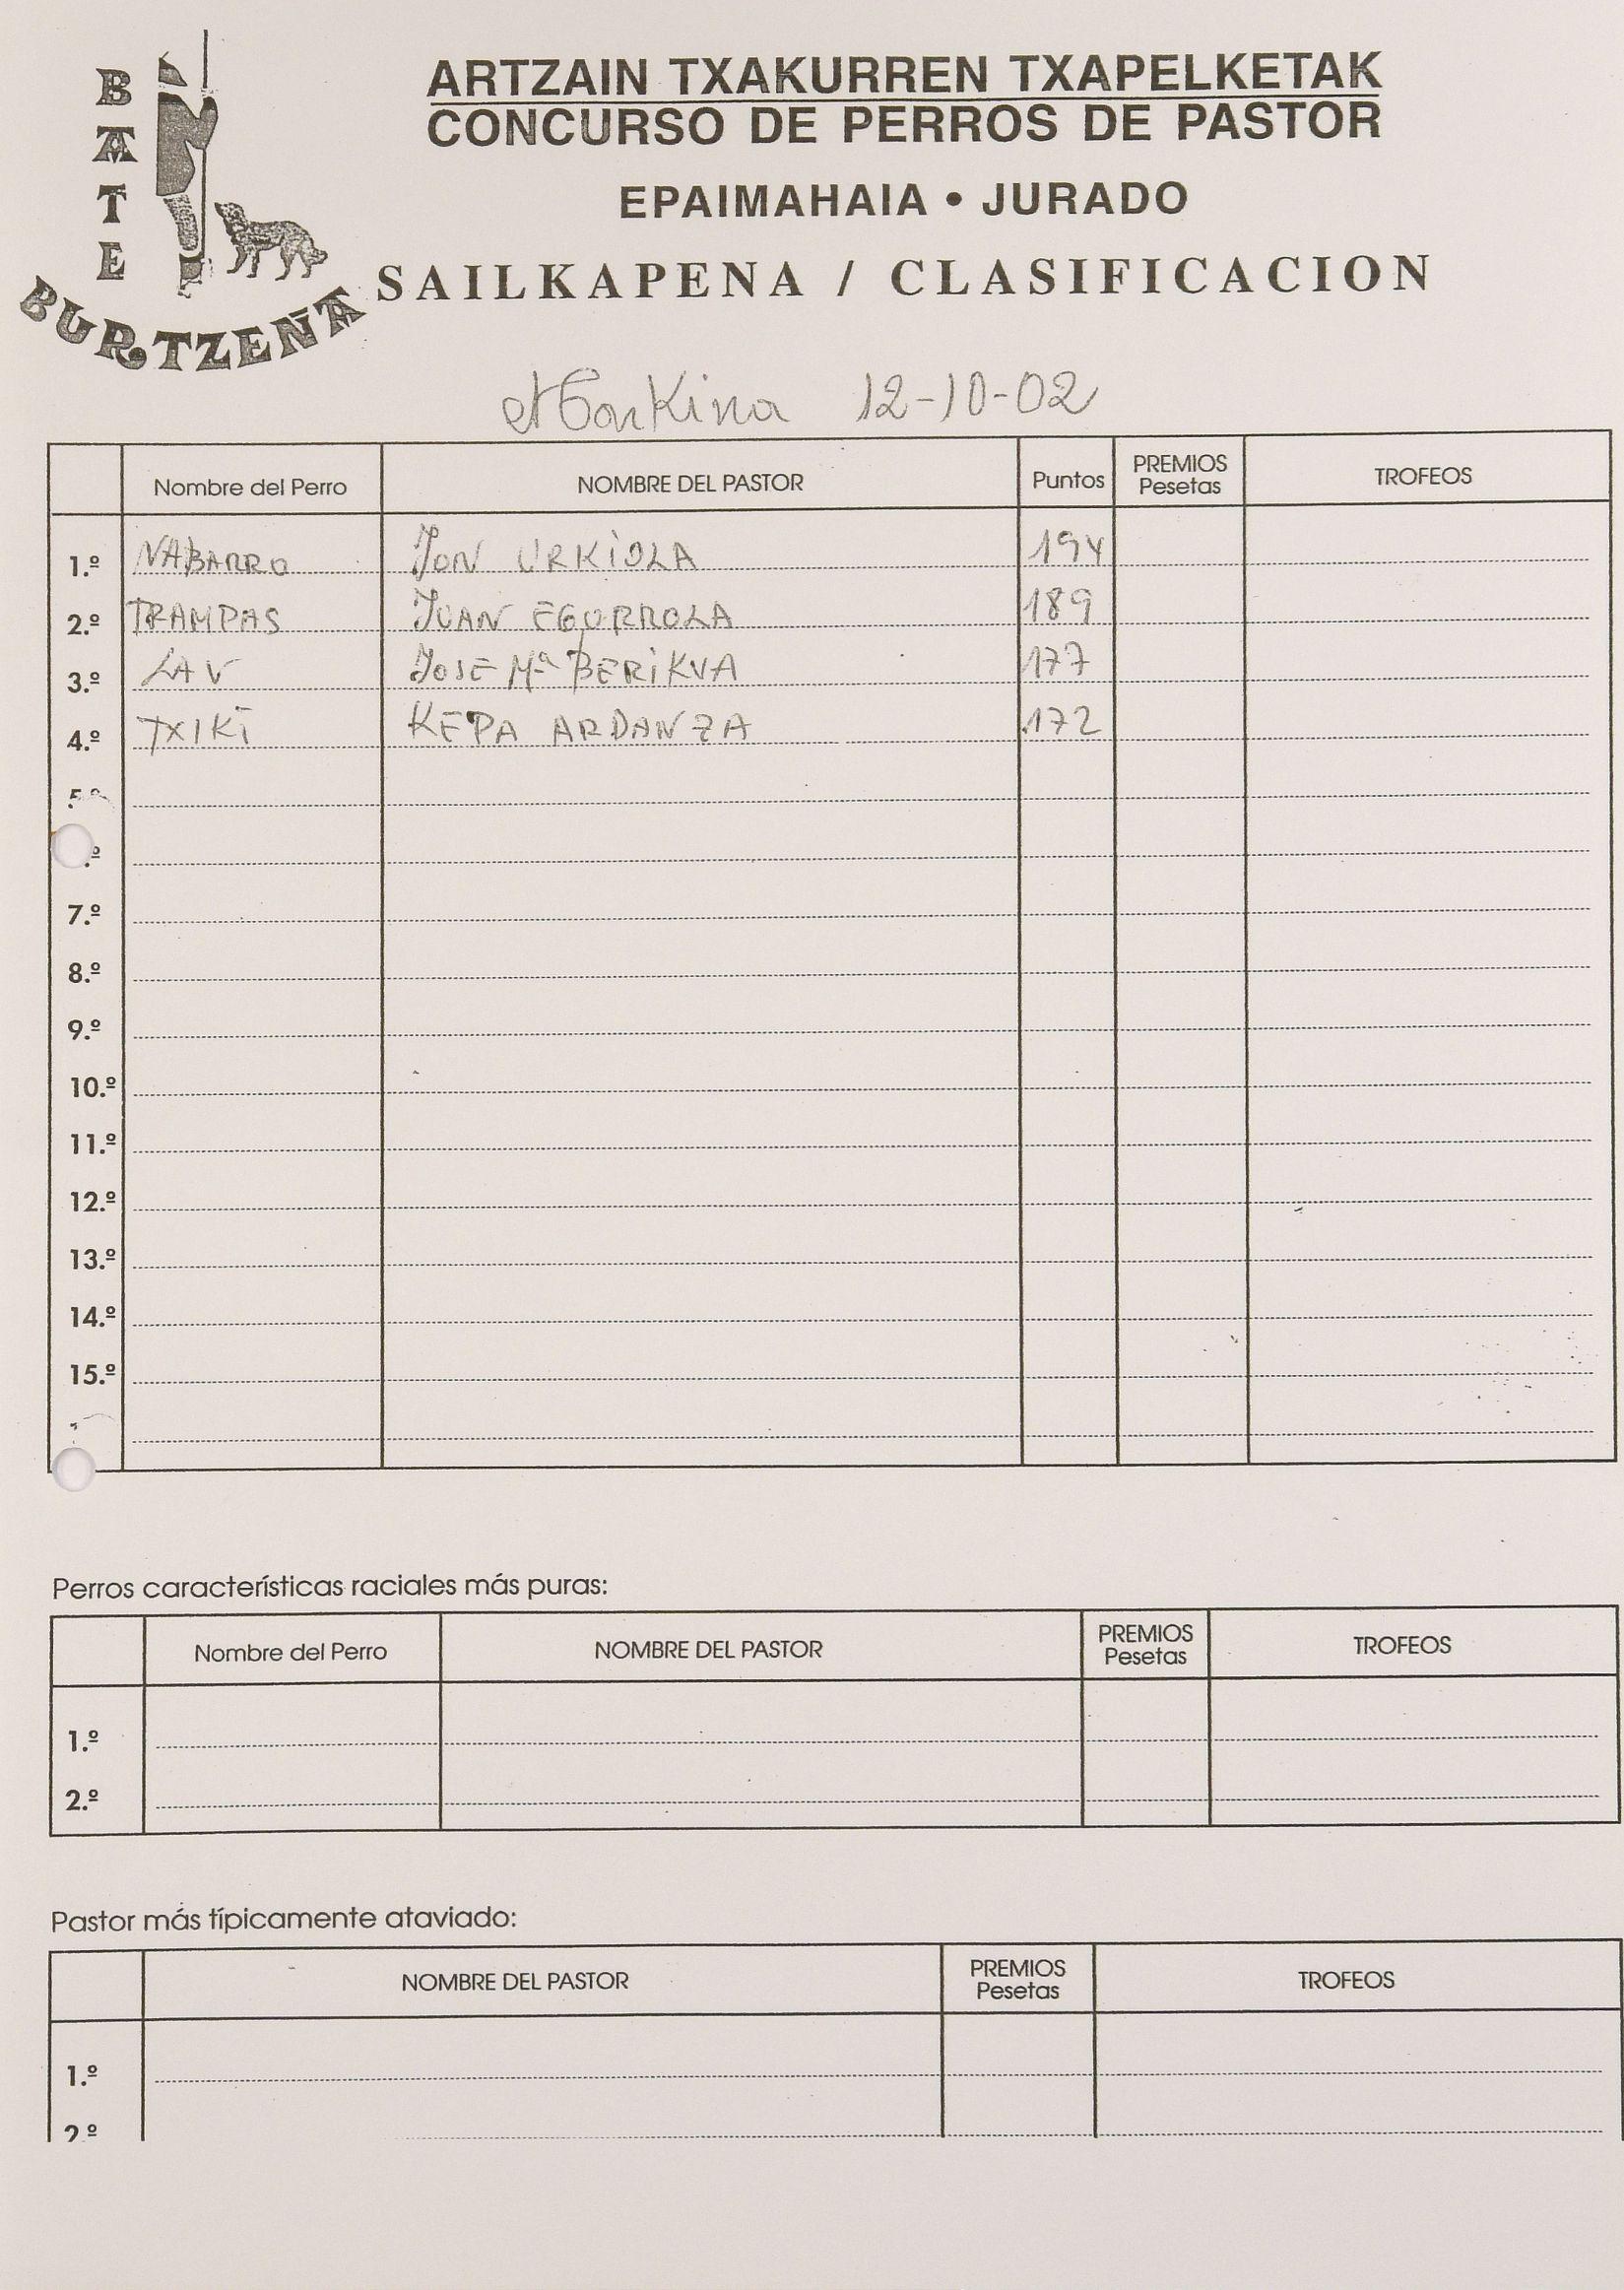 BATE
BURTZEÑA
ARTZAIN TXAKURREN TXAPELKETAK
CONCURSO DE PERROS DE PASTOR
EPAIMAHAIA • JURADO
SAILKAPENA / CLASIFICACION
Markina 12-10-02
Nombre del Perro NOMBRE DEL PASTOR Puntos PREMIOS Pesetas TROFEOS
1.º NABARRO JON URKIOLA 194
2.º TRAMPAS JUAN EGURROLA 189
3.º LAV JOSE Mª BERIKUA 177
4.º TXIKI KEPA ARDANZA 172
5.º
.º
7.º
8.º
9.º
10.º
11.º
12.º
13.º
14.º
15.º
Perros características raciales más puras:
Nombre del Perro NOMBRE DEL PASTOR PREMIOS Pesetas TROFEOS
1.º
2.º
Pastor más típicamente ataviado:
NOMBRE DEL PASTOR PREMIOS Pesetas TROFEOS
1.º
2.º